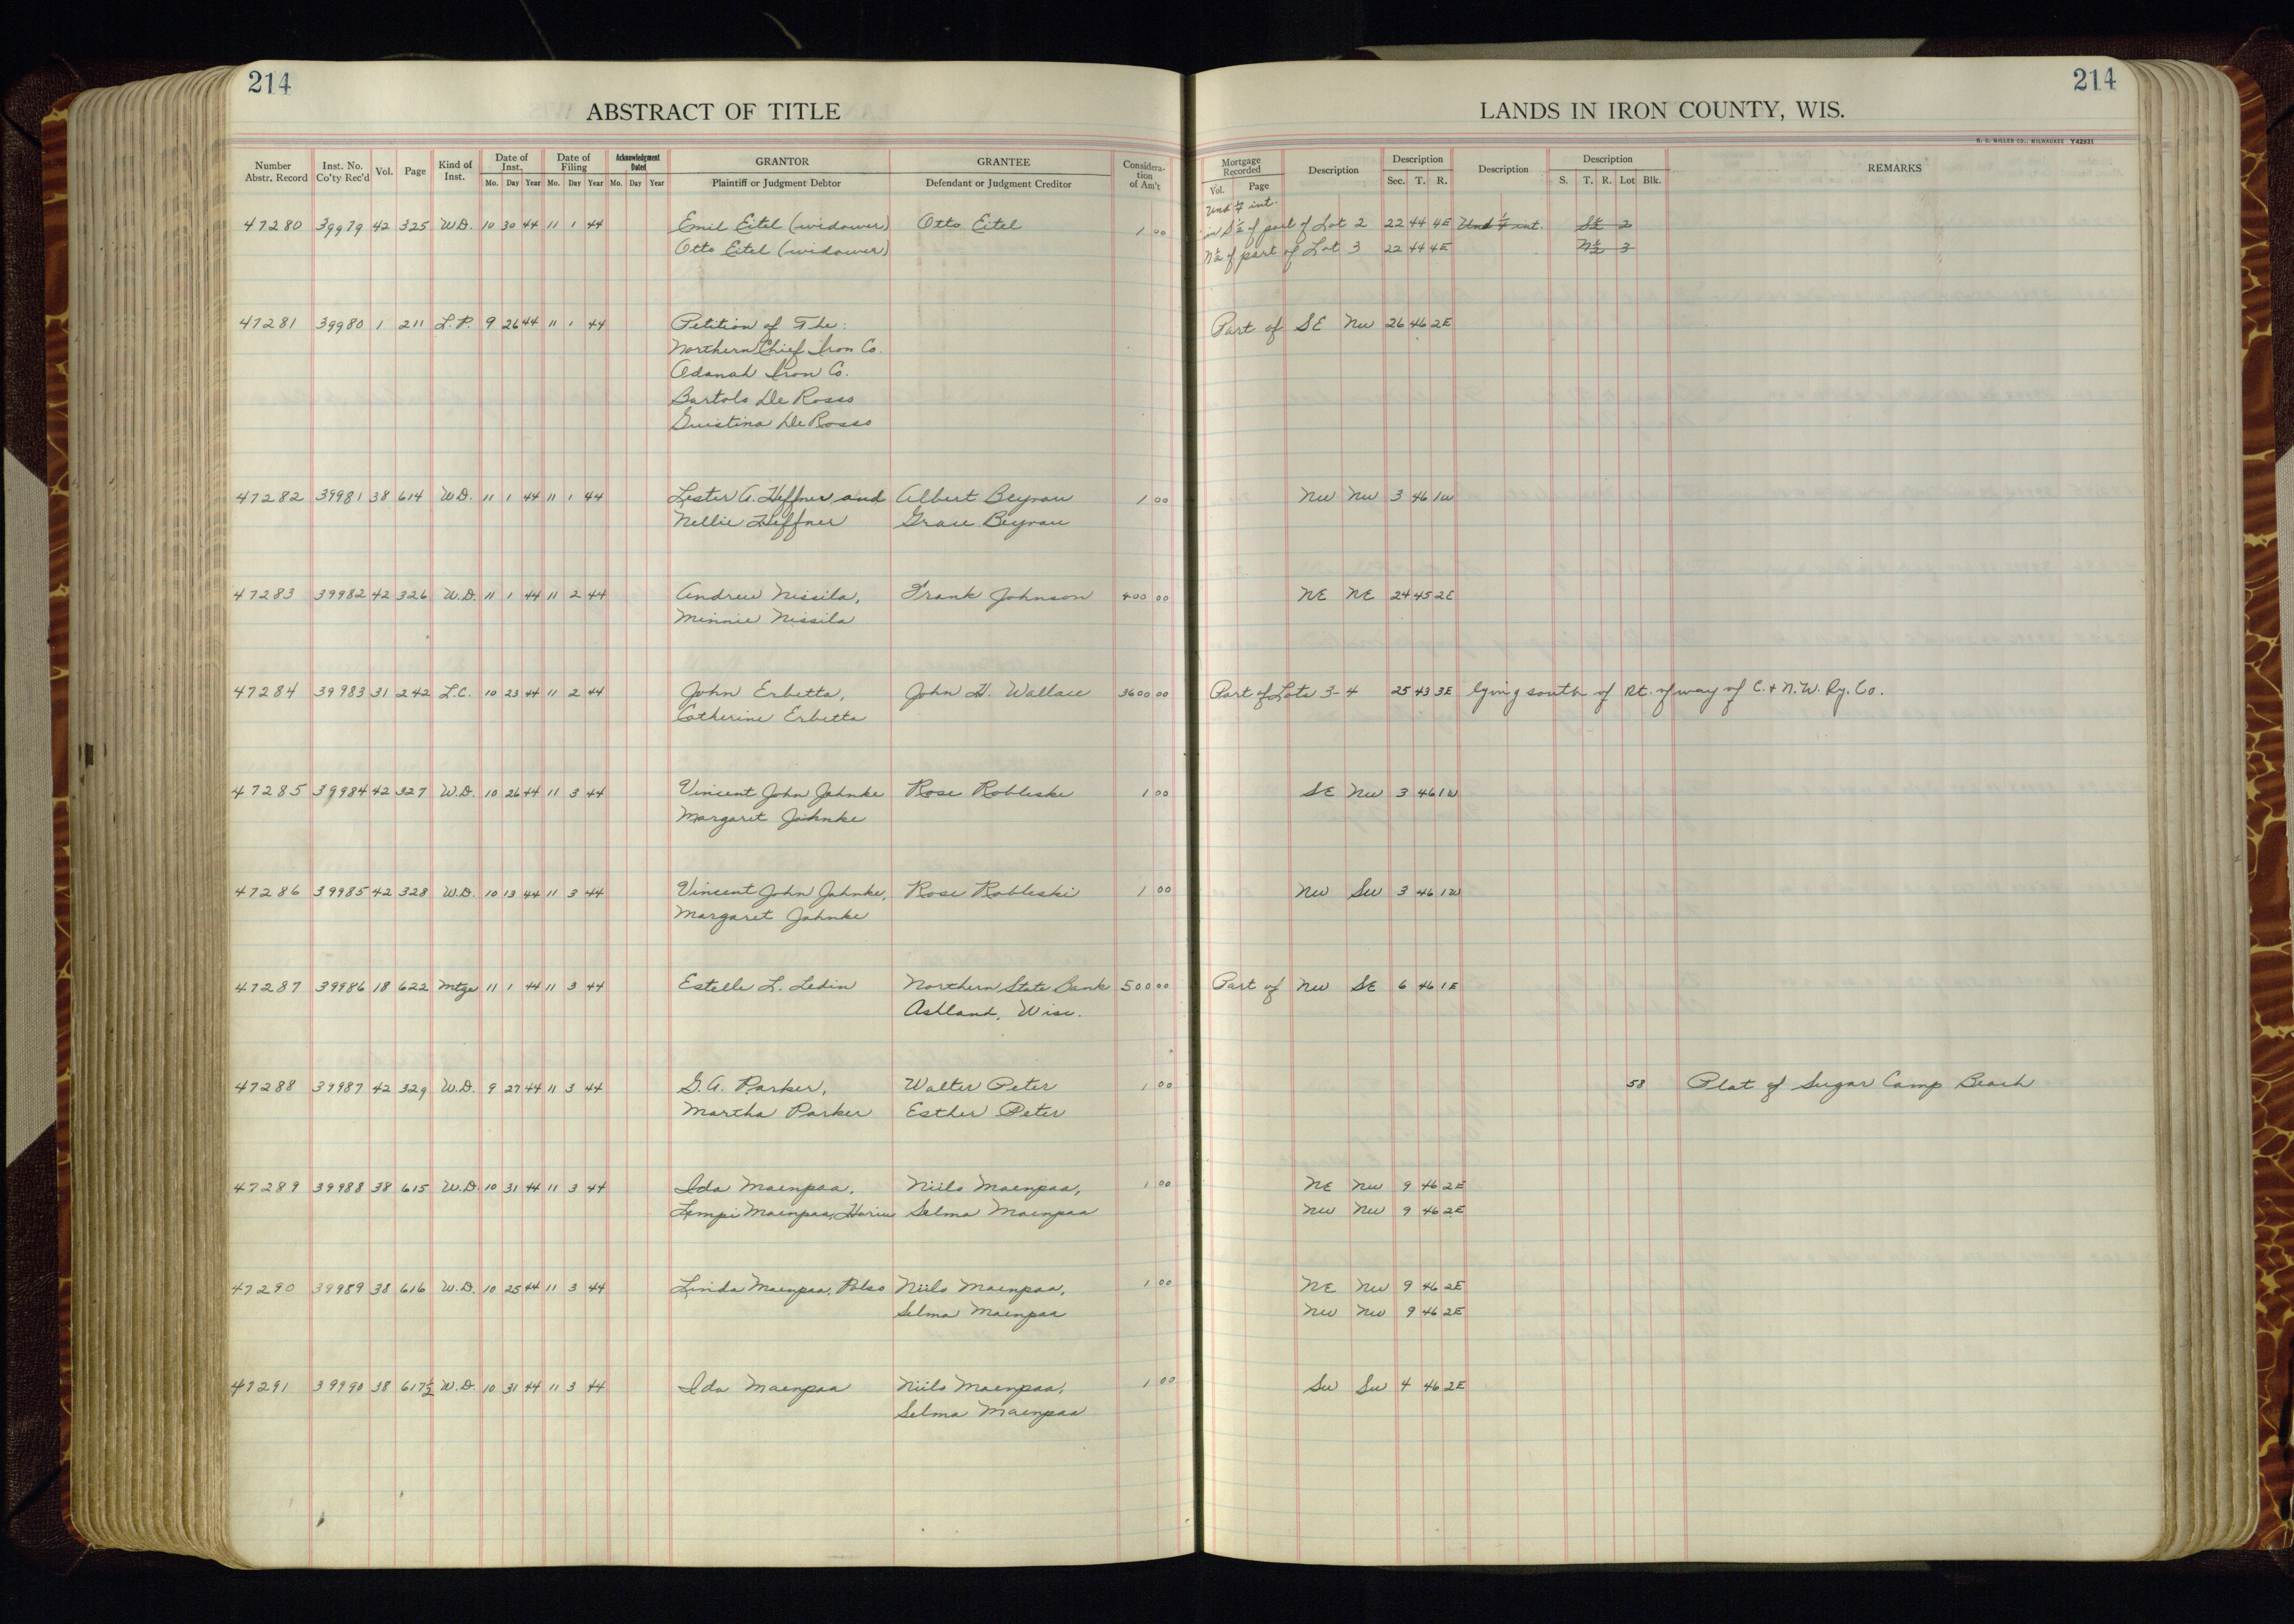 214
ABSTRACT OF TITLE
Number Abstr. Record Inst. No. Co'ty Rec'd Vol. Page Kind of Inst. Date of Inst. Date of Filing Acknowledgment Dated GRANTOR GRANTEE Consideration of Am't
Mo. Day Year Mo. Day Year Mo. Day Year Plaintiff or Judgment Debtor Defendant or Judgment Creditor
47280 39979 42 325 W.D. 10 30 44 11 1 44 Emil Eitel (widower) Otto Eitel 1 00
Otto Eitel (widower)
47281 39980 1 211 L.P. 9 26 44 11 1 44 Petition of The:
Northern Chief Iron Co.
Odanah Iron Co.
Bartolo De Rosso
Guistina De Rosso
47282 39981 38 614 W.D. 11 1 44 11 1 44 Lester A. Heffner and Albert Beyrau 1 00
Nellie Heffner Grace Beyrau
47283 39982 42 326 W.D. 11 1 44 11 2 44 Andrew Nissila, Frank Johnson 400 00
Minnie Nissila
47284 39983 31 242 L.C. 10 23 44 11 2 44 John Erbetta, John H. Wallace 3600 00
Catherine Erbetta
47285 39984 42 327 W.D. 10 26 44 11 3 44 Vincent John Jahnke Rose Robleske 1 00
Margaret Jahnke
47286 39985 42 328 W.D. 10 13 44 11 3 44 Vincent John Jahnke, Rose Robleski 1 00
Margaret Jahnke
47287 39986 18 622 Mtge 11 1 44 11 3 44 Estelle L. Ledin Northern State Bank 500 00
Ashland, Wisc.
47288 39987 42 329 W.D. 9 27 44 11 3 44 G.A. Parker, Walter Peter 1 00
Martha Parker Esther Peter
47289 39988 38 615 W.D. 10 31 44 11 3 44 Ida Maenpaa, Niilo Maenpaa, 1 00
Lempi Maenpaa, Selma Maenpaa
47290 39989 38 616 W.D. 10 25 44 11 3 44 Linda Maenpaa, Palso Niilo Maenpaa, 1 00
Selma Maenpaa
47291 39990 38 617½ W.D. 10 31 44 11 3 44 Ida Maenpaa Niilo Maenpaa, 1 00
Selma Maenpaa
214
LANDS IN IRON COUNTY, WIS.
H. C. MILLER CO., MILWAUKEE Y42931
Mortgage Recorded Description Description Description Description REMARKS
Vol. Page Sec. T. R. S. T. R. Lot Blk.
Und ¼ int.
in S½ of part of Lot 2 22 44 4E Und ¼ int. S½ 2
N½ of part of Lot 3 22 44 4E N½ 3
Part of SE NW 26 46 2E
NW NW 3 46 1W
NE NE 24 45 2E
Part of Lots 3-4 25 43 3E lying south of Rt. of way of C. & N.W. Ry. Co.
SE NW 3 46 1W
NW SW 3 46 1W
Part of NW SE 6 46 1E
58 Plat of Sugar Camp Beach
NE NW 9 46 2E
NW NW 9 46 2E
NE NW 9 46 2E
NW NW 9 46 2E
SW SW 4 46 2E